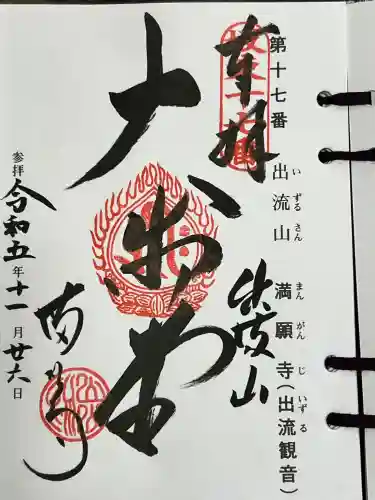 第十七番 出流山 満願寺(出流観音)
いずるさん まんがんじ いずる
奉拝
出流山
大御堂
満願寺
参拝
令和五年十一月廿六日